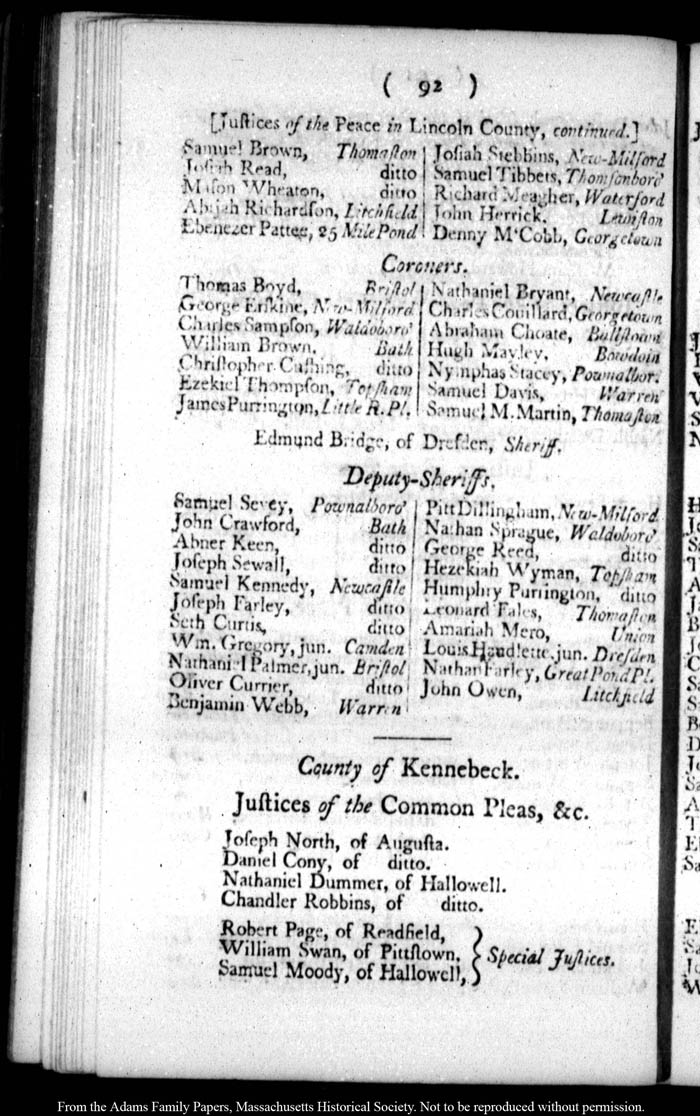 ( 92 )
[Juſtices of the Peace in Lincoln County, continued.]
Samuel Brown, Thomaſton
Joſiah Read, ditto
Maſon Wheaton, ditto
Abijah Richardſon, Litchfield
Ebenezer Pattee, 25 Mile Pond
Joſiah Stebbins, New-Milford
Samuel Tibbets, Thomſonboro'
Richard Meagher, Waterford
John Herrick. Lewiſton
Denny M'Cobb, Georgetown
Coroners.
Thomas Boyd, Briſtol
George Erſkine, New-Milford
Charles Sampſon, Waldoboro'
William Brown, Bath
Chriſtopher Cuſhing, ditto
Ezekiel Thompſon, Topſham
James Purrington, Little R. Pl.
Nathaniel Bryant, Newcaſtle
Charles Couillard, Georgetown
Abraham Choate, Ballſtown
Hugh Mayley, Bowdoin
Nymphas Stacey, Pownalbor.
Samuel Davis, Warren
Samuel M. Martin, Thomaſton
Edmund Bridge, of Dreſden, Sheriff.
Deputy-Sheriffs.
Samuel Sevey, Pownalboro'
John Crawford, Bath
Abner Keen, ditto
Joſeph Sewall, ditto
Samuel Kennedy, Newcaſtle
Joſeph Farley, ditto
Seth Curtis, ditto
Wm. Gregory, jun. Camden
Nathaniel Palmer, jun. Briſtol
Oliver Currier, ditto
Benjamin Webb, Warren
Pitt Dillingham, New-Milford
Nathan Sprague, Waldoboro'
George Reed, ditto
Hezekiah Wyman, Topſham
Humphry Purrington, ditto
Leonard Fales, Thomaſton
Amariah Mero, Union
Louis Houdlette, jun. Dreſden
Nathan Farley, Great Pond Pl.
John Owen, Litchfield
County of Kennebeck.
Juſtices of the Common Pleas, &c.
Joſeph North, of Auguſta.
Daniel Cony, of ditto.
Nathaniel Dummer, of Hallowell.
Chandler Robbins, of ditto.
Robert Page, of Readfield,
William Swan, of Pittſtown, } Special Juſtices.
Samuel Moody, of Hallowell,
From the Adams Family Papers, Massachusetts Historical Society. Not to be reproduced without permission.